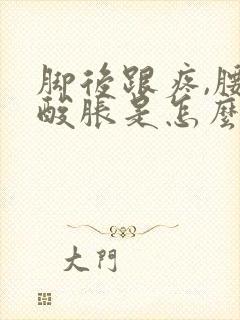 脚後跟疼,腰
酸脹是怎麼
大門